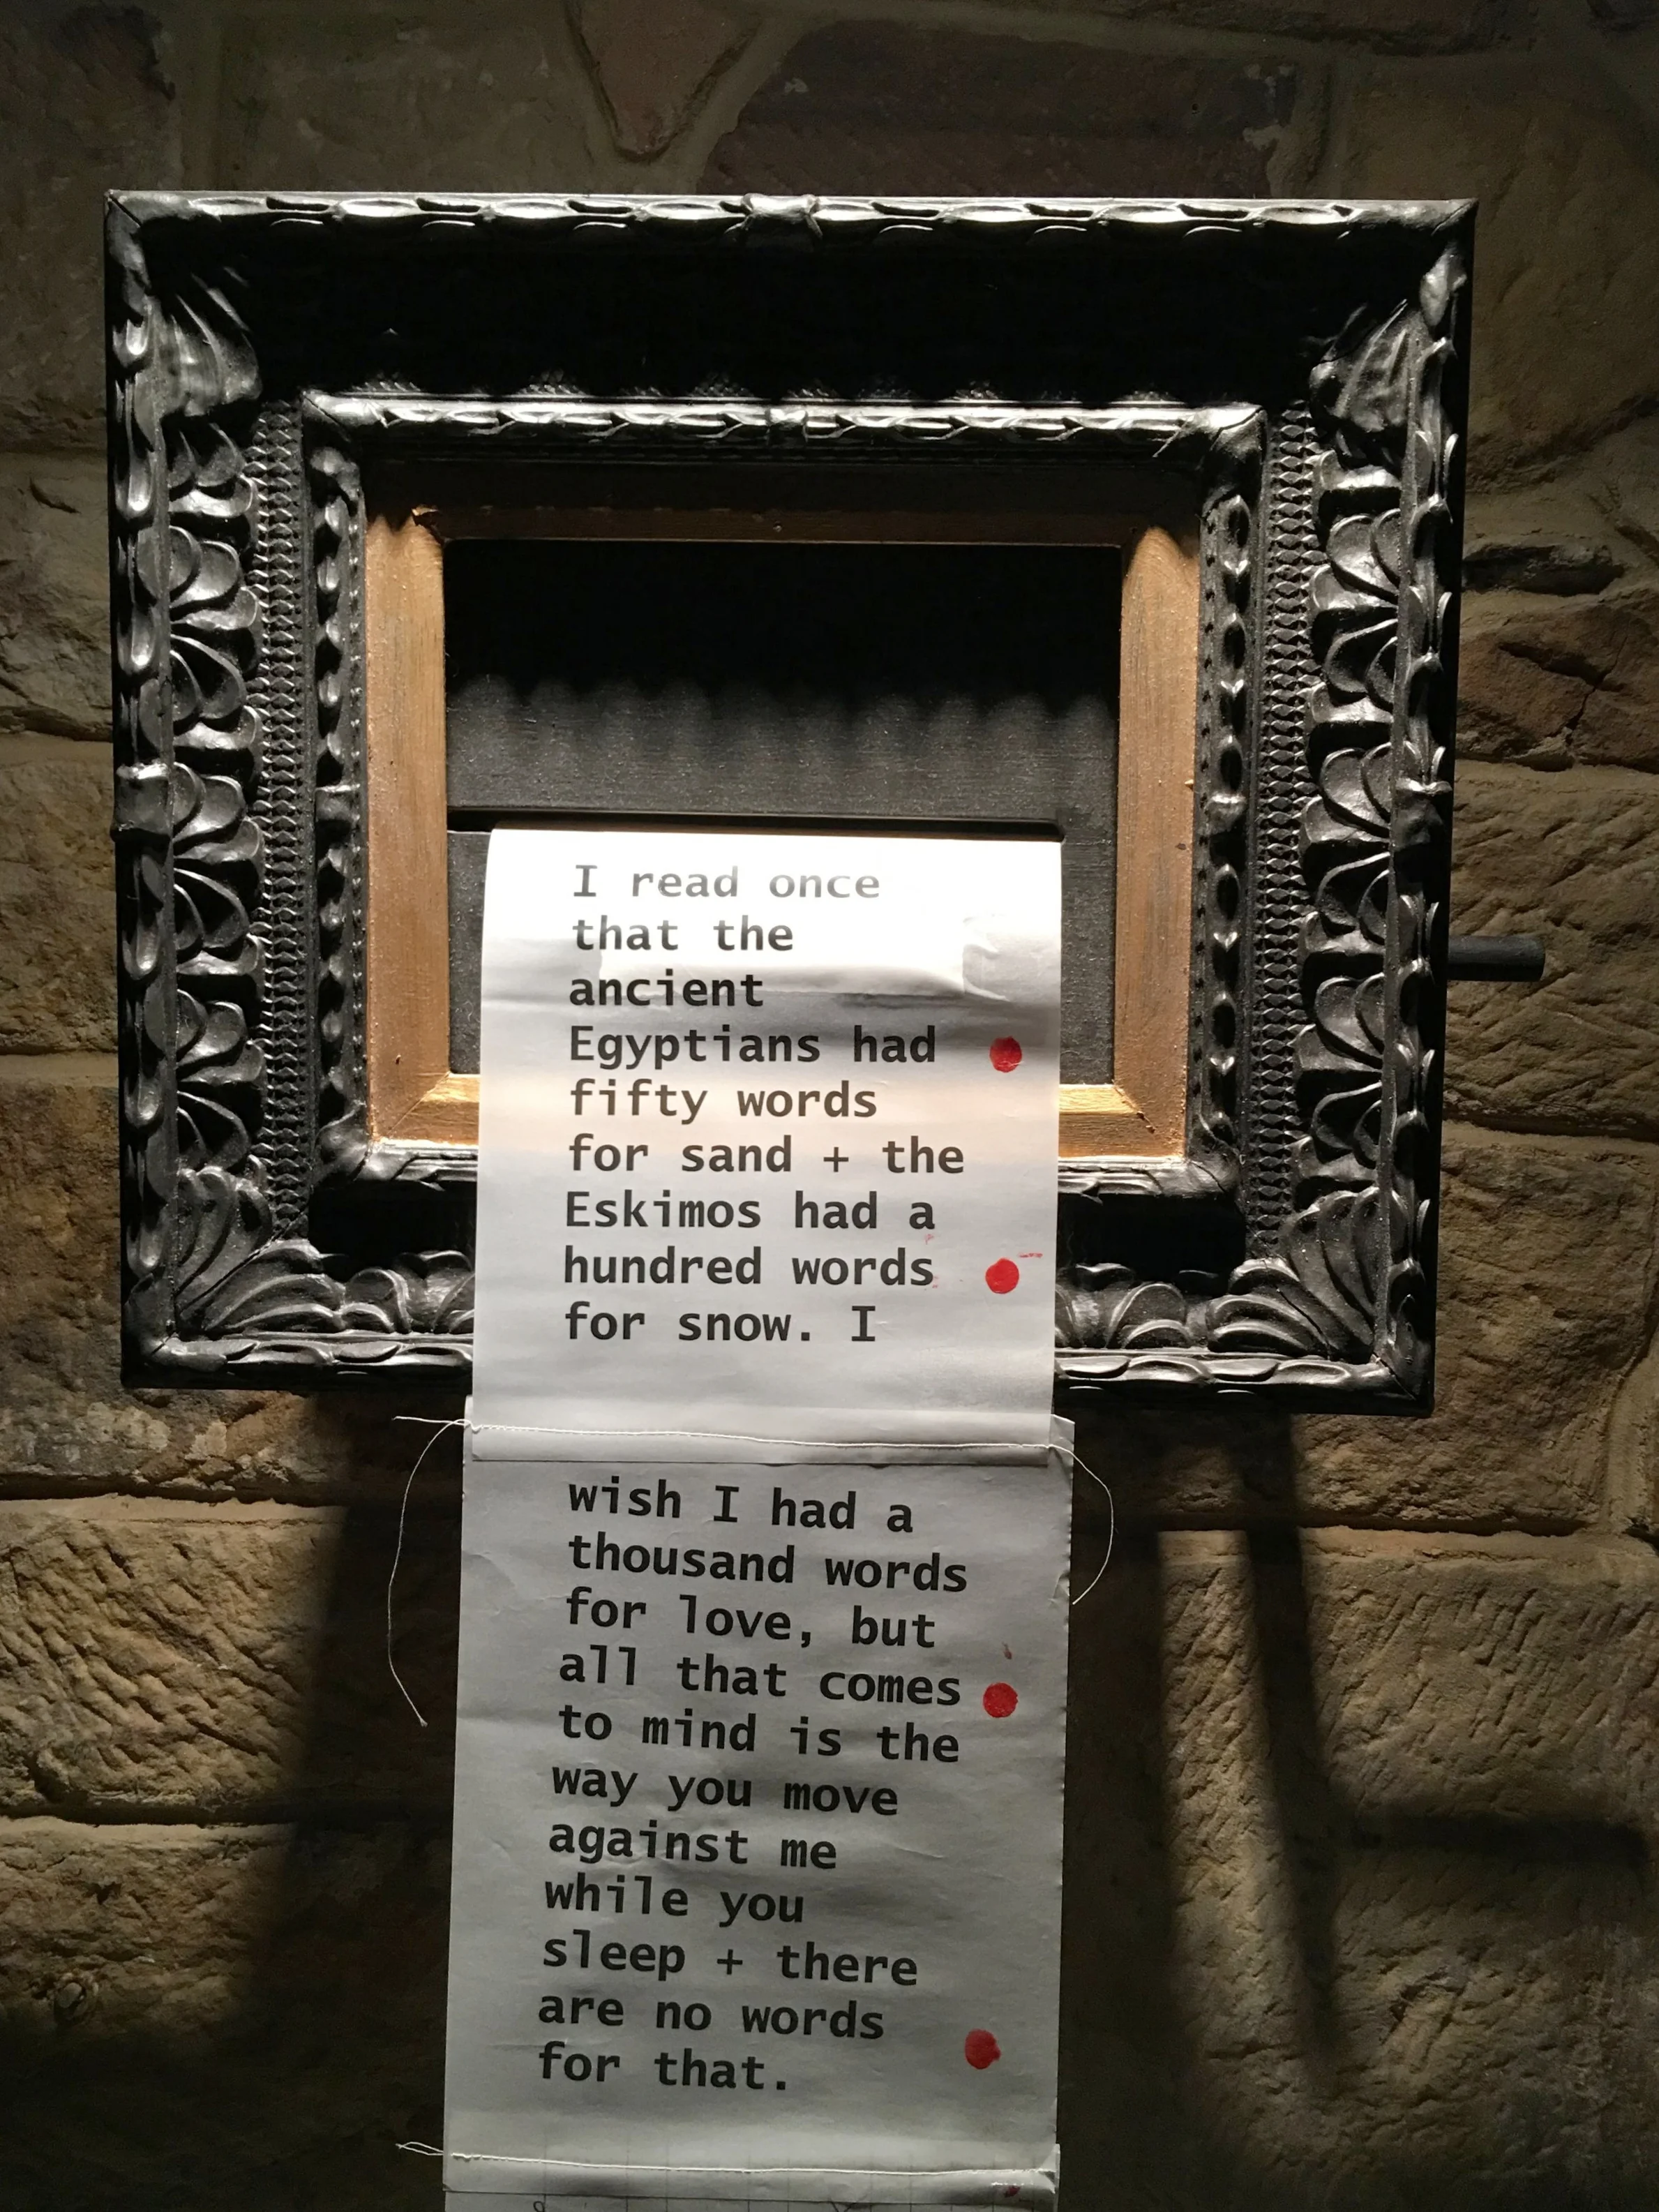 I read once
that the
ancient
Egyptians had
fifty words
for sand + the
Eskimos had a
hundred words
for snow. I
wish I had a
thousand words
for love, but
all that comes
to mind is the
way you move
against me
while you
sleep + there
are no words
for that.